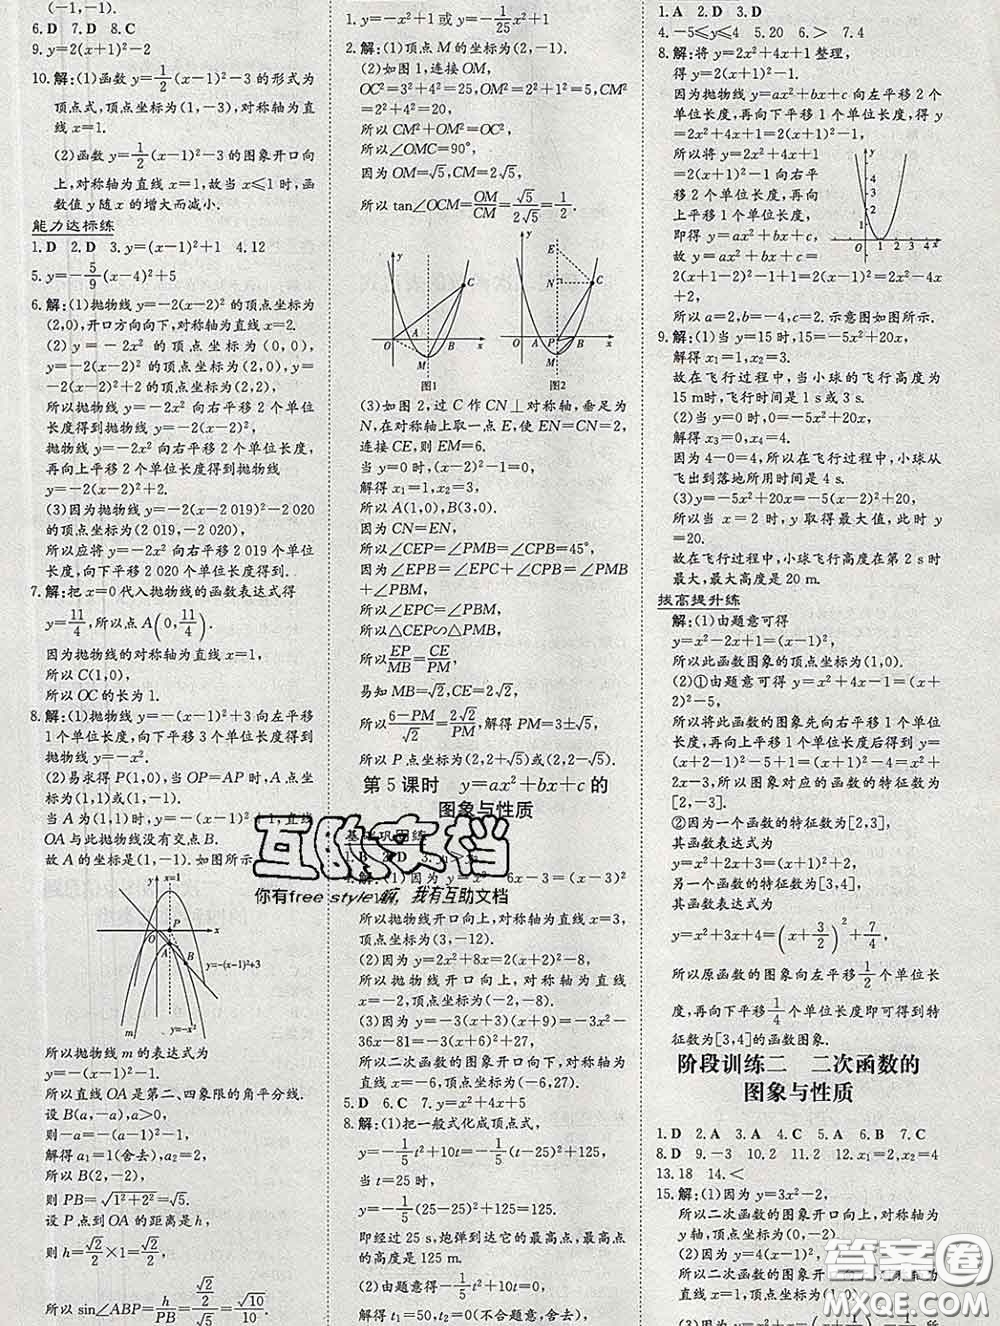 (-1,-1).
6.D 7.D 8.C
9.y=2(x+1)²-2
10.解:(1)函数 y=1/2(x-1)²-3 的形式为
顶点式,顶点坐标为(1,-3),对称轴为直
线 x=1.
(2)函数 y=1/2(x-1)²-3 的图象开口向
上,对称轴为直线 x=1,故当 x≤1 时,函
数值 y 随 x 的增大而减小.
能力达标练
1.D 2.D 3.y=(x-1)²+1 4.12
5.y=-5/9(x-4)²+5
6.解:(1)抛物线 y=-2(x-2)² 的顶点坐标为
(2,0),开口方向向下,对称轴为直线 x=2.
(2)y=-2x² 的顶点坐标为(0,0),
y=-2(x-2)² 的顶点坐标为(2,0),
y=-2(x-2)²+2 的顶点坐标为(2,2),
所以抛物线 y=-2x² 向右平移 2 个单位
长度得到抛物线 y=-2(x-2)²,
抛物线 y=-2x² 向右平移 2 个单位长度,
再向上平移 2 个单位长度得到抛物线
y=-2(x-2)²+2.
(3)因为抛物线 y=-2(x-2 019)²-2 020
的顶点坐标为(2 019,-2 020),
所以应将 y=-2x² 向右平移 2 019 个单位
长度,向下平移 2 020 个单位长度得到.
7.解:把 x=0 代入抛物线的函数表达式得
y=11/4,所以点 A(0,11/4).
因为抛物线的对称轴为直线 x=1,
所以 C(1,0),
所以 OC 的长为 1.
8.解:(1)抛物线 y=-(x-1)²+3 向左平移
1 个单位长度,向下平移 3 个单位长度得到
抛物线 y=-x².
(2)易求得 P(1,0),当 OP=AP 时,A 点坐
标为(1,1)或(1,-1).
当 A 为(1,1)时,
OA 与此抛物线没有交点 B.
故 A 的坐标是(1,-1).如图所示
y x=1
O P x
A B
y=-(x-1)²+3
m y=-x²
所以抛物线 m 的表达式为
y=-(x-1)²-1.
所以直线 OA 是第二、四象限的角平分线.
设 B(a,-a),a>0,
则-a=-(a-1)²-1,
解得 a₁=1(舍去),a₂=2.
所以 B(2,-2),
则 PB=√(1²+2²)=√5.
设 P 点到 OA 的距离是 h,
则 h=√2/2×1=√2/2,
所以 sin∠ABP=h/PB=(√2/2)/√5=√10/10.
1. y=-x²+1 或 y=-1/25x²+1
2.解:(1)顶点 M 的坐标为(2,-1).
(2)如图 1,连接 OM,
OC²=3²+4²=25,OM²=2²+1²=5,CM²
=2²+4²=20,
所以 CM²+OM²=OC²,
所以∠OMC=90°,
因为 OM=√5,CM=2√5,
所以 tan∠OCM=OM/CM=√5/2√5=1/2.
y C A O B x M
图1
y E N C A O P B x M
图2
(3)如图 2,过 C 作 CN⊥对称轴,垂足为
N,在对称轴上取一点 E,使 EN=CN=2,
连接 CE,则 EM=6.
当 y=0 时,(x-2)²-1=0,
解得 x₁=1,x₂=3,
所以 A(1,0),B(3,0).
因为 CN=EN,
所以∠CEP=∠PMB=∠CPB=45°,
因为∠EPB=∠EPC+∠CPB=∠PMB
+∠PBM,
所以∠EPC=∠PBM,
所以△CEP∽△PMB,
所以 EP/MB=CE/PM,
易知 MB=√2,CE=2√2,
所以 (6-PM)/√2=2√2/PM,解得 PM=3±√5,
所以 P 点坐标为(2,2+√5)或(2,2-√5).
第 5 课时 y=ax²+bx+c 的
图象与性质
互助文档
你有free style嘛,我有互助文档
所以抛物线开口向上,对称轴为直线 x=3,
顶点坐标为(3,-12).
(2)因为 y=2x²+8x=2(x+2)²-8,
所以抛物线开口向上,对称轴为直线
x=-2,顶点坐标为(-2,-8).
(3)因为 y=-3(x+3)(x+9)=-3x²-
36x-81=-3(x+6)²+27,
所以二次函数的图象开口向下,对称轴为
直线 x=-6,顶点坐标为(-6,27).
5.D 6.C 7.y=x²+4x+5
8.解:(1)把一般式化成顶点式,
y=-1/5t²+10t=-1/5(t-25)²+125.
当 t=25 时,
y=-1/5(25-25)²+125=125.
即经过 25 s,炮弹到达它的最高点,最高点
的高度是 125 m.
(2)由题意得-1/5t²+10t=0,
解得 t₁=50,t₂=0(不合题意,舍去),
1.A 2.D 3.D
4.-5≤y≤4 5.20 6.> 7.4
8.解:将 y=2x²+4x+1 整理,
得 y=2(x+1)²-1.
因为抛物线 y=ax²+bx+c 向左平移 2 个
单位长度,再向下平移 1 个单位长度,得
y=2x²+4x+1=2(x+1)²-1,
所以将 y=2x²+4x+1
=2(x+1)²-1 向右平
移 2 个单位长度,再向上
平移 1 个单位长度,
即得 y=ax²+bx+c,
故 y=ax²+bx+c=
2(x+1-2)²-1+1=2(x-1)²=2x²-4x
+2,
所以 a=2,b=-4,c=2.示意图如图所示.
y 4 3 2 1
O 1 2 3 4 x
9.解:(1)当 y=15 时,15=-5x²+20x,
解得 x₁=1,x₂=3.
故在飞行过程中,当小球的飞行高度为
15 m时,飞行时间是 1 s或 3 s.
(2)当 y=0 时,0=-5x²+20x,
解得 x₃=0,x₄=4.
因为 4-0=4,所以在飞行过程中,小球从
飞出到落地所用时间是 4 s.
(3)y=-5x²+20x=-5(x-2)²+20,
所以当 x=2 时,y 取得最大值,此时 y
=20.
故在飞行过程中,小球飞行高度在第 2 s时
最大,最大高度是 20 m.
拔高提升练
解:(1)由题意可得
y=x²-2x+1=(x-1)²,
所以此函数图象的顶点坐标为(1,0).
(2)①由题意可得 y=x²+4x-1=(x+
2)²-5,
所以将此函数的图象先向右平移 1 个单位
长度,再向上平移 1 个单位长度后得到
y=(x+2-1)²-5+1=(x+1)²-4=x²+
2x-3,所以图象对应的函数的特征数为
[2,-3].
②因为一个函数的特征数为[2,3],
其函数表达式为
y=x²+2x+3=(x+1)²+2,
另一个函数的特征数为[3,4],
其函数表达式为
y=x²+3x+4=(x+3/2)²+7/4,
所以原函数的图象向左平移1/2个单位长
度,再向下平移1/4个单位长度即可得到特
征数为[3,4]的函数图象.
阶段训练二 二次函数的
图象与性质
1.D 2.A 3.A 4.C 5.A 6.B 7.C
8.D 9.-3 10.2 11.2 12.x₁=-2,x₂=4
13.18 14.<
15.解:(1)因为 y=3x²-2,
所以二次函数的图象开口向上,对称轴为
y 轴,顶点坐标为(0,-2).
答案圈
MXQE.COM